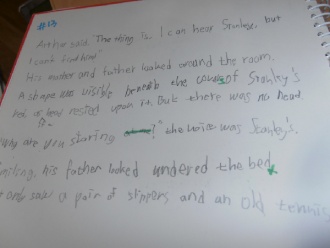 #13
Arthur said. The thing is I can hear Stanley, but
I can't find him"
His mother and father looked around the room.
A shape was visible beneath the covers of Stanley's
bed, as if rested upon it. But there was no head.
"Why are you staring ?" the voice was Stanley's.
miling, his father looked undered the bed.
t only saw a pair of slippers and an old tennis